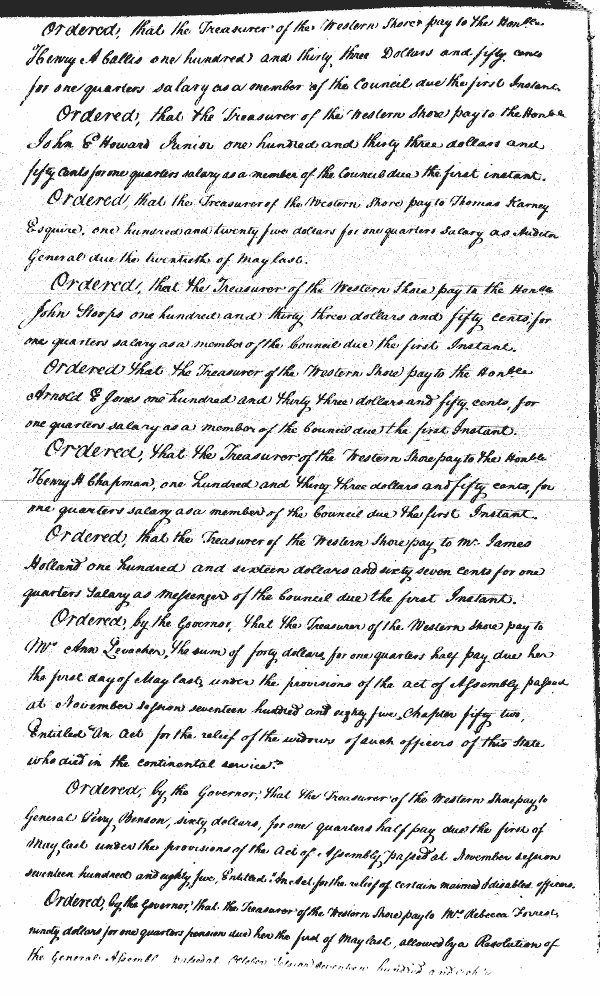 Ordered, that the Treasurer of the Western Shore pay to the Honble
Henry A Callis one hundred and thirty three Dollars and fifty cents
for one quarters salary as a member of the Council due the first Instant.
Ordered, that the Treasurer of the Western Shore pay to the Honble
John E Howard Junior one hundred and thirty three dollars and
fifty cents for one quarters salary as a member of the Council due the first instant.
Ordered, that the Treasurer of the Western Shore pay to Thomas Karney
Esquire, one hundred and twenty five dollars for one quarters salary as Auditor
General due the twentieth of May last.
Ordered, that the Treasurer of the Western Shore pay to the Honble
John Stoops one hundred and thirty three dollars and fifty cents, for
one quarters salary as a member of the Council due the first Instant.
Ordered that the Treasurer of the Western Shore pay to the Honble
Arnold E Jones one hundred and thirty three dollars and fifty cents, for
one quarters salary as a member of the Council due the first Instant.
Ordered, that the Treasurer of the Western Shore pay to the Honble
Henry H Chapman, one hundred and thirty three dollars and fifty cents, for
one quarters salary as a member of the Council due the first Instant.
Ordered, that the Treasurer of the Western Shore pay to Mr. James
Holland one hundred and sixteen dollars and sixty seven cents for one
quarters salary as Messenger of the Council due the first Instant.
Ordered, by the Governor, that the Treasurer of the Western Shore pay to
Mrs Ann Levacher, the sum of forty dollars, for one quarters half pay due her
the first day of May last, under the provisions of the act of Assembly passed
at November session seventeen hundred and eighty five, Chapter fifty two,
Entitled "An Act for the relief of the widows of such officers of this State
who died in the continental service."
Ordered, by the Governor, that the Treasurer of the Western Shore pay to
General Perry Benson, sixty dollars, for one quarters half pay due the first of
May last under the provisions of the Act of Assembly, passed at November session
seventeen hundred and eighty five, Entitled "An Act for the relief of certain maimed & disabled officers.
Ordered, by the Governor, that the Treasurer of the Western Shore pay to Mrs Rebecca Forrest,
ninety dollars for one quarters pension due her the first of May last, allowed by a Resolution of
the General Assembly passed at October session seventeen hundred and